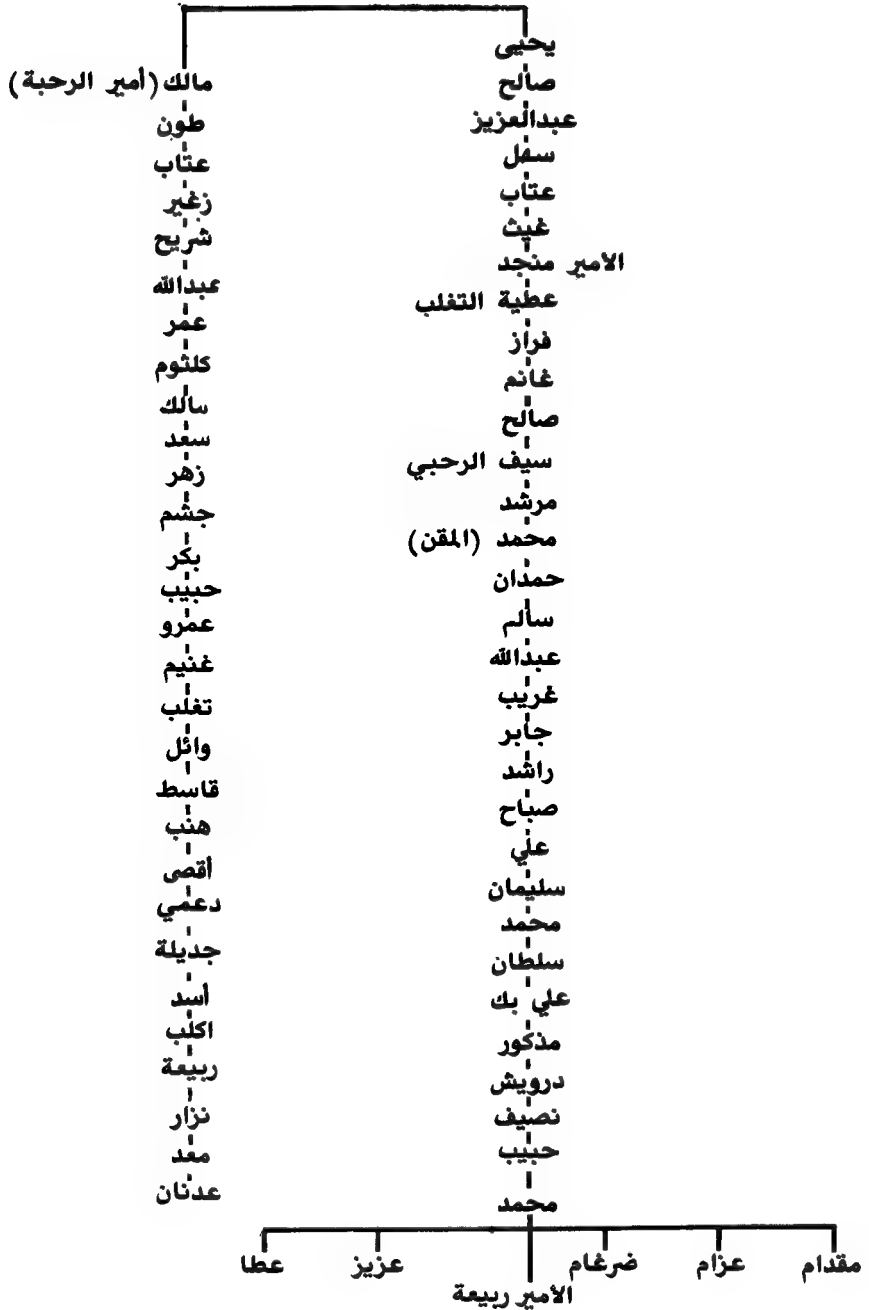 يحيى
صالح
عبدالعزيز
سهل
عتاب
غيث
الأمير منجد
عطية التغلب
فراز
غانم
صالح
سيف الرحبي
مرشد
محمد (المقن)
حمدان
سالم
عبدالله
غريب
جابر
راشد
صباح
علي
سليمان
محمد
سلطان
علي بك
مذكور
درويش
نصيف
حبيب
محمد
مالك (أمير الرحبة)
طون
عتاب
زغير
شريح
عبدالله
عمر
كلثوم
مالك
سعد
زهر
جشم
بكر
حبيب
عمرو
غنيم
تغلب
وائل
قاسط
هنب
أقصى
دعمي
جديلة
أسد
اكلب
ربيعة
نزار
معد
عدنان
مقدام
عزام
ضرغام
الأمير ربيعة
عزيز
عطا